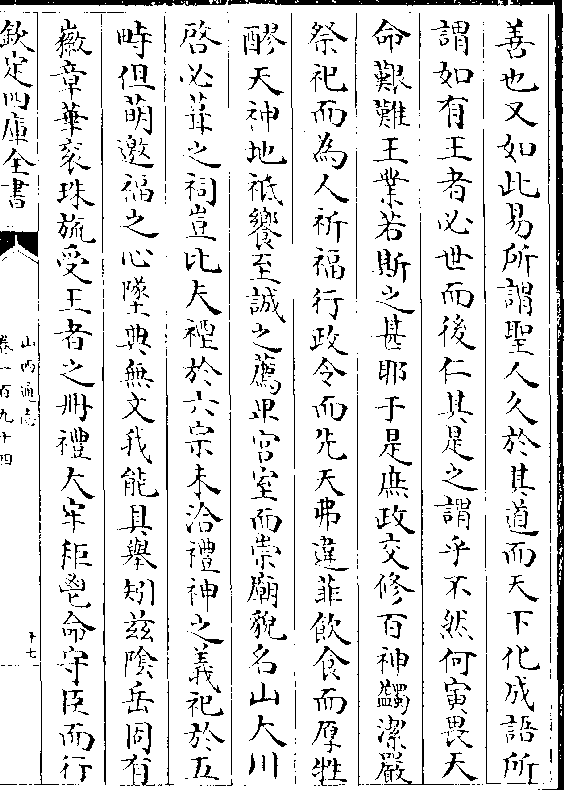 善也又如此易所謂聖人久於其道而天下化成語所
謂如有王者必世而後仁其是之謂乎不然何寅畏天
命艱難王業若斯之甚耶于是庶政交修百神蠲潔嚴
祭祀而為人祈福行政令而先天弗違菲飲食而厚牲
醪天神地祗饗至誠之薦卑宫室而崇廟貌名山大川
啓必葺之祠豈比夫禮於六宗未洽禮神之義祀於五
畤但萌邀福之心墜典無文我能具舉矧兹陰岳同有
徽章華衮珠旒受王者之冊禮大牢秬鬯命守臣而行
欽定四庫全書
山西通志
卷一百九十四
十七